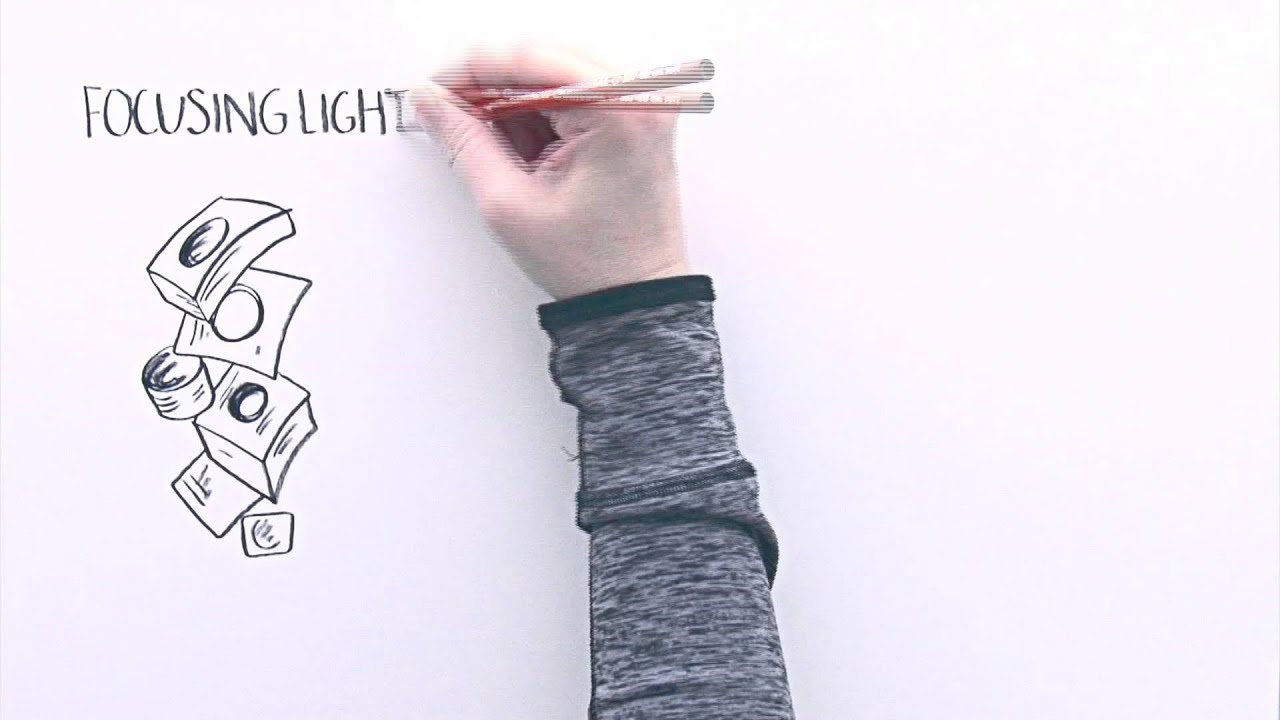 FOCUSING LIGHT